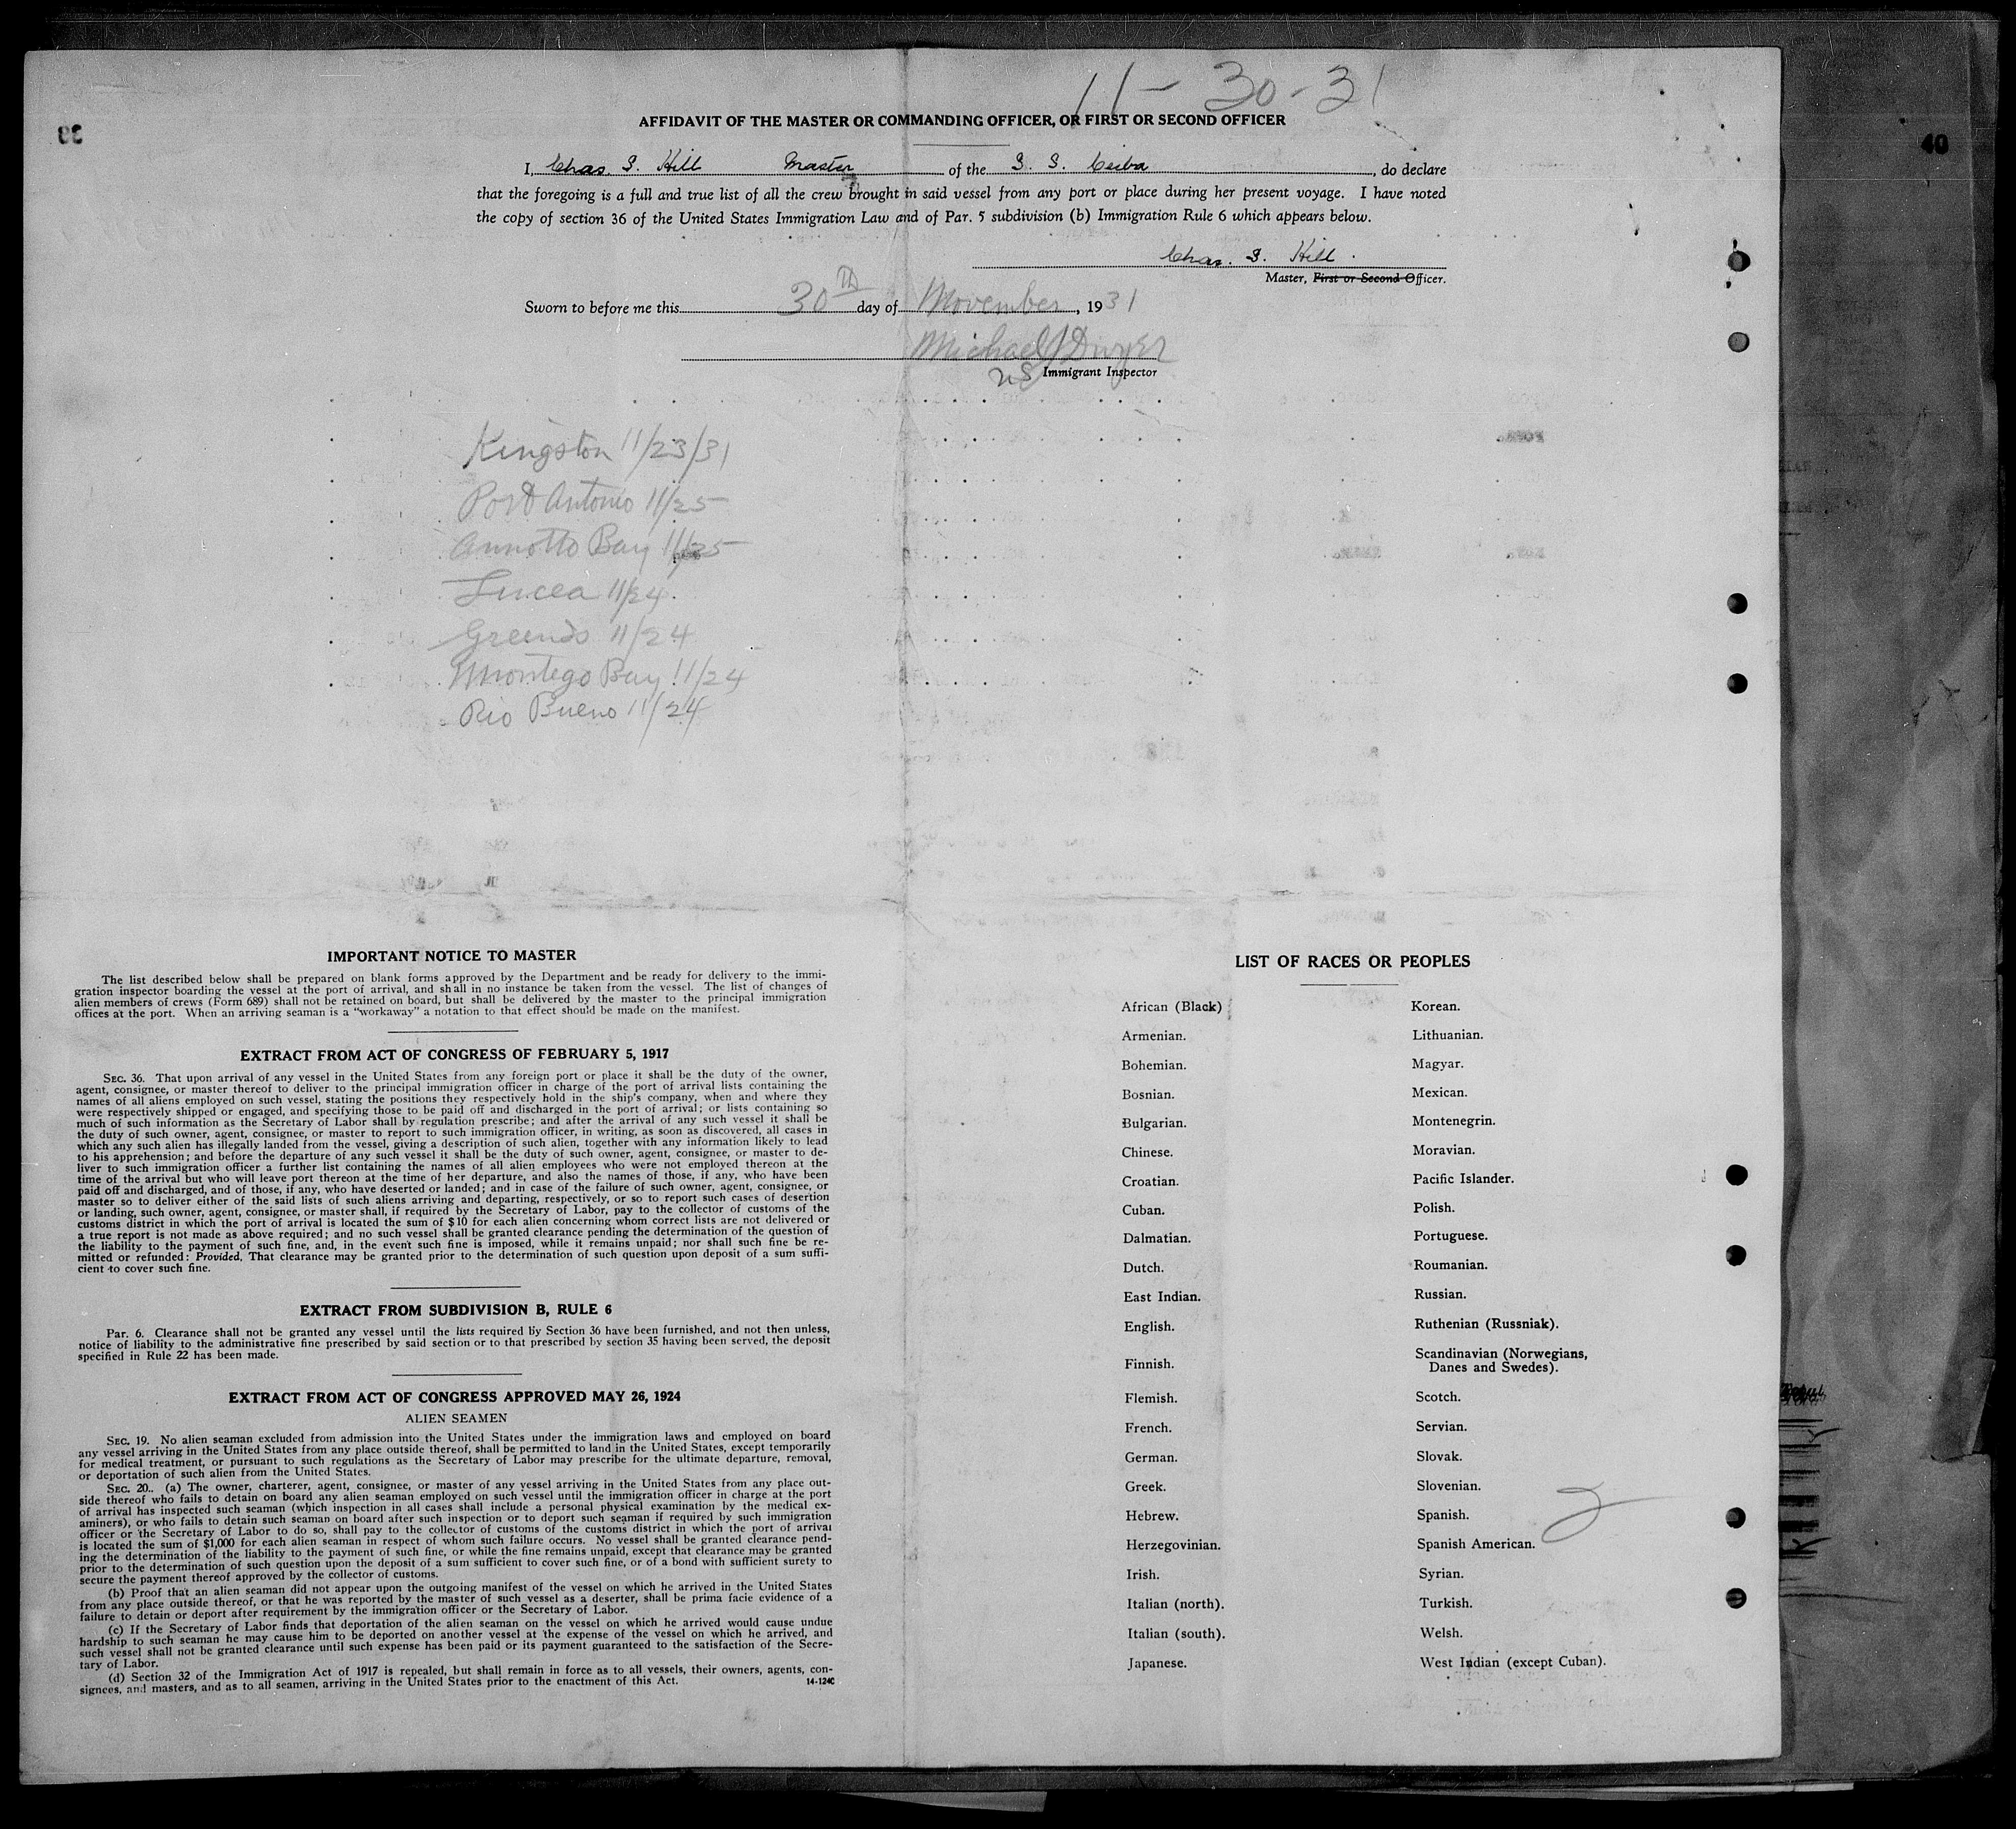 11-30-31
AFFIDAVIT OF THE MASTER OR COMMANDING OFFICER, OR FIRST OR SECOND OFFICER
40
I, Chas. S. Hill Master of the S. S. Ceiba, do declare
that the foregoing is a full and true list of all the crew brought in said vessel from any port or place during her present voyage. I have noted
the copy of section 36 of the United States Immigration Law and of Par. 5 subdivision (b) Immigration Rule 6 which appears below.
Chas. S. Hill.
Master, First or Second Officer.
Sworn to before me this 30th day of November, 1931
Michael J Dwyer
US Immigrant Inspector
Kingston 11/23/31
Port Antonio 11/25
Annotto Bay 11/25
Lucea 11/24.
11/24
Montego Bay 11/24
Rio Bueno 11/24
IMPORTANT NOTICE TO MASTER
The list described below shall be prepared on blank forms approved by the Department and be ready for delivery to the immi-
gration inspector boarding the vessel at the port of arrival, and shall in no instance be taken from the vessel. The list of changes of
alien members of crews (Form 689) shall not be retained on board, but shall be delivered by the master to the principal immigration
offices at the port. When an arriving seaman is a "workaway" a notation to that effect should be made on the manifest.
EXTRACT FROM ACT OF CONGRESS OF FEBRUARY 5, 1917
SEC. 36. That upon arrival of any vessel in the United States from any foreign port or place it shall be the duty of the owner,
agent, consignee, or master thereof to deliver to the principal immigration officer in charge of the port of arrival lists containing the
names of all aliens employed on such vessel, stating the positions they respectively hold in the ship's company, when and where they
were respectively shipped or engaged, and specifying those to be paid off and discharged in the port of arrival; or lists containing so
much of such information as the Secretary of Labor shall by regulation prescribe; and after the arrival of any such vessel it shall be
the duty of such owner, agent, consignee, or master to report to such immigration officer, in writing, as soon as discovered, all cases in
which any such alien has illegally landed from the vessel, giving a description of such alien, together with any information likely to lead
to his apprehension; and before the departure of any such vessel it shall be the duty of such owner, agent, consignee, or master to de-
liver to such immigration officer a further list containing the names of all alien employees who were not employed thereon at the
time of the arrival but who will leave port thereon at the time of her departure, and also the names of those, if any, who have been
paid off and discharged, and of those, if any, who have deserted or landed; and in case of the failure of such owner, agent, consignee, or
master so to deliver either of the said lists of such aliens arriving and departing, respectively, or so to report such cases of desertion
or landing, such owner, agent, consignee, or master shall, if required by the Secretary of Labor, pay to the collector of customs of the
customs district in which the port of arrival is located the sum of $10 for each alien concerning whom correct lists are not delivered or
a true report is not made as above required; and no such vessel shall be granted clearance pending the determination of the question of
the liability to the payment of such fine, and, in the event such fine is imposed, while it remains unpaid; nor shall such fine be re-
mitted or refunded: Provided, That clearance may be granted prior to the determination of such question upon deposit of a sum suffi-
cient to cover such fine.
EXTRACT FROM SUBDIVISION B, RULE 6
Par. 6. Clearance shall not be granted any vessel until the lists required by Section 36 have been furnished, and not then unless,
notice of liability to the administrative fine prescribed by said section or to that prescribed by section 35 having been served, the deposit
specified in Rule 22 has been made.
EXTRACT FROM ACT OF CONGRESS APPROVED MAY 26, 1924
ALIEN SEAMEN
SEC. 19. No alien seaman excluded from admission into the United States under the immigration laws and employed on board
any vessel arriving in the United States from any place outside thereof, shall be permitted to land in the United States, except temporarily
for medical treatment, or pursuant to such regulations as the Secretary of Labor may prescribe for the ultimate departure, removal,
or deportation of such alien from the United States.
SEC. 20.. (a) The owner, charterer, agent, consignee, or master of any vessel arriving in the United States from any place out-
side thereof who fails to detain on board any alien seaman employed on such vessel until the immigration officer in charge at the port
of arrival has inspected such seaman (which inspection in all cases shall include a personal physical examination by the medical ex-
aminers), or who fails to detain such seaman on board after such inspection or to deport such seaman if required by such immigration
officer or the Secretary of Labor to do so, shall pay to the collector of customs of the customs district in which the port of arrival
is located the sum of $1,000 for each alien seaman in respect of whom such failure occurs. No vessel shall be granted clearance pend-
ing the determination of the liability to the payment of such fine, or while the fine remains unpaid, except that clearance may be granted
prior to the determination of such question upon the deposit of a sum sufficient to cover such fine, or of a bond with sufficient surety to
secure the payment thereof approved by the collector of customs.
(b) Proof that an alien seaman did not appear upon the outgoing manifest of the vessel on which he arrived in the United States
from any place outside thereof, or that he was reported by the master of such vessel as a deserter, shall be prima facie evidence of a
failure to detain or deport after requirement by the immigration officer or the Secretary of Labor.
(c) If the Secretary of Labor finds that deportation of the alien seaman on the vessel on which he arrived would cause undue
hardship to such seaman he may cause him to be deported on another vessel at the expense of the vessel on which he arrived, and
such vessel shall not be granted clearance until such expense has been paid or its payment guaranteed to the satisfaction of the Secre-
tary of Labor.
(d) Section 32 of the Immigration Act of 1917 is repealed, but shall remain in force as to all vessels, their owners, agents, con-
signees, and masters, and as to all seamen, arriving in the United States prior to the enactment of this Act.
14-1240
LIST OF RACES OR PEOPLES
African (Black)
Armenian.
Bohemian.
Bosnian.
Bulgarian.
Chinese.
Croatian.
Cuban.
Dalmatian.
Dutch.
East Indian.
English.
Finnish.
Flemish.
French.
German.
Greek.
Hebrew.
Herzegovinian.
Irish.
Italian (north).
Italian (south).
Japanese.
Korean.
Lithuanian.
Magyar.
Mexican.
Montenegrin.
Moravian.
Pacific Islander.
Polish.
Portuguese.
Roumanian.
Russian.
Ruthenian (Russniak).
Scandinavian (Norwegians,
Danes and Swedes).
Scotch.
Servian.
Slovak.
Slovenian.
Spanish.
Spanish American.
Syrian.
Turkish.
Welsh.
West Indian (except Cuban).